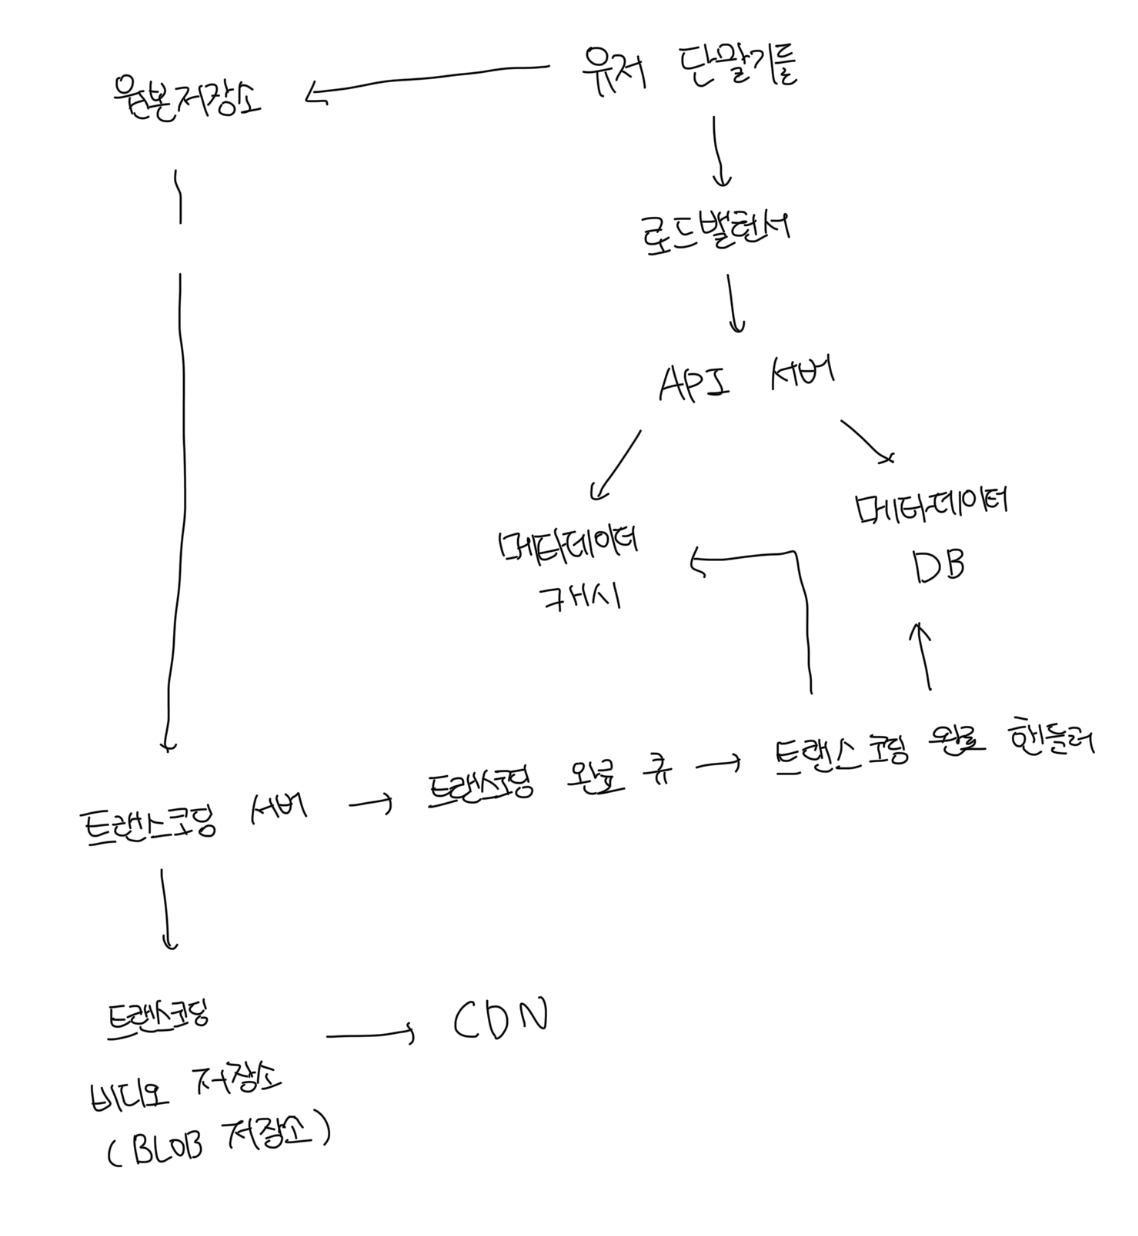 원본저장소
유저 단말기들
로드밸런서
API 서버
메타데이터
캐시
메타데이터
DB
트랜스코딩 서버
트랜스코딩 완료 큐
트랜스코딩 완료 핸들러
트랜스코딩
비디오 저장소
(BLOB 저장소)
CDN